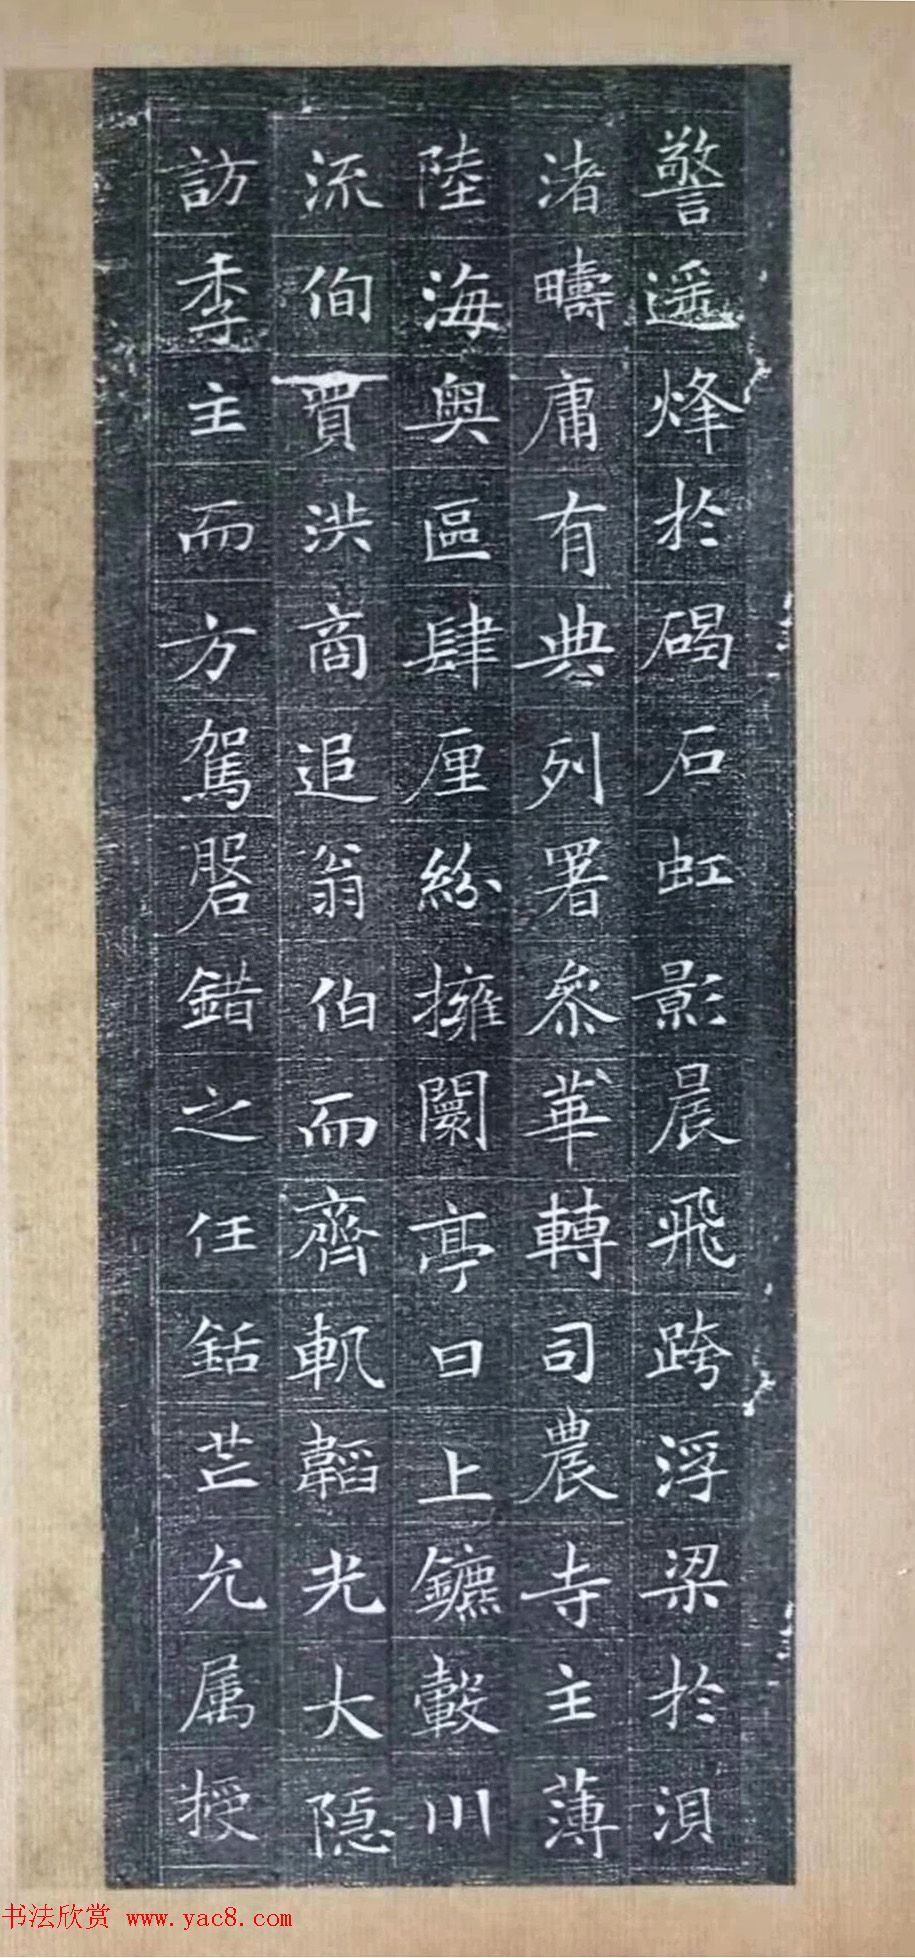 警遥烽於碣石虹影晨飛跨浮梁於浿
渚疇庸有典列署叅華轉司農寺主薄
陸海奥區肆厘紛擁闤亭日上鑣轂川
流佝買洪商追翁伯而齊軌韜光大隐
訪季主而方駕磐錯之任銛芒允属授
书法欣赏 www.yac8.com